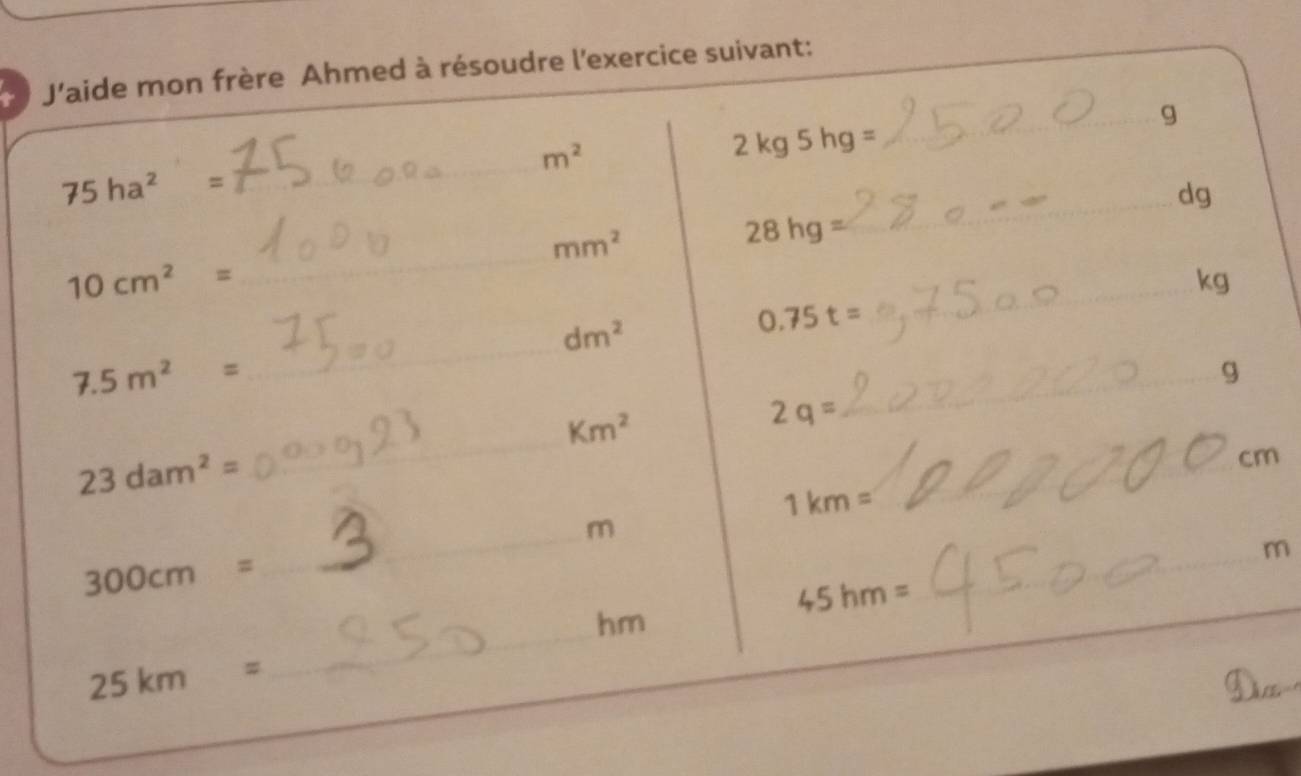 J'aide mon frère Ahmed à résoudre l'exercice suivant:
75 ha² = 750000 m²
10 cm² = 1000 mm²
7.5 m² = 7500 dm²
23 dam² = 0000,23 Km²
300cm = 3 m
25 km = 250 hm
2 kg 5 hg = 2500 g
28 hg = 28000 dg
0.75 t = 0,7500 kg
2 q = 2000000 g
1 km = 1000000 cm
45 hm = 4500 m